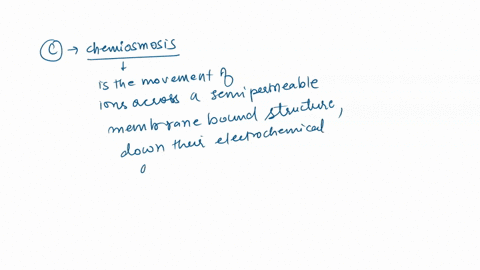 (C) → chemiosmosis
↓
is the movement of
ions across a semipermeable
membrane bound structure,
down their electrochemical